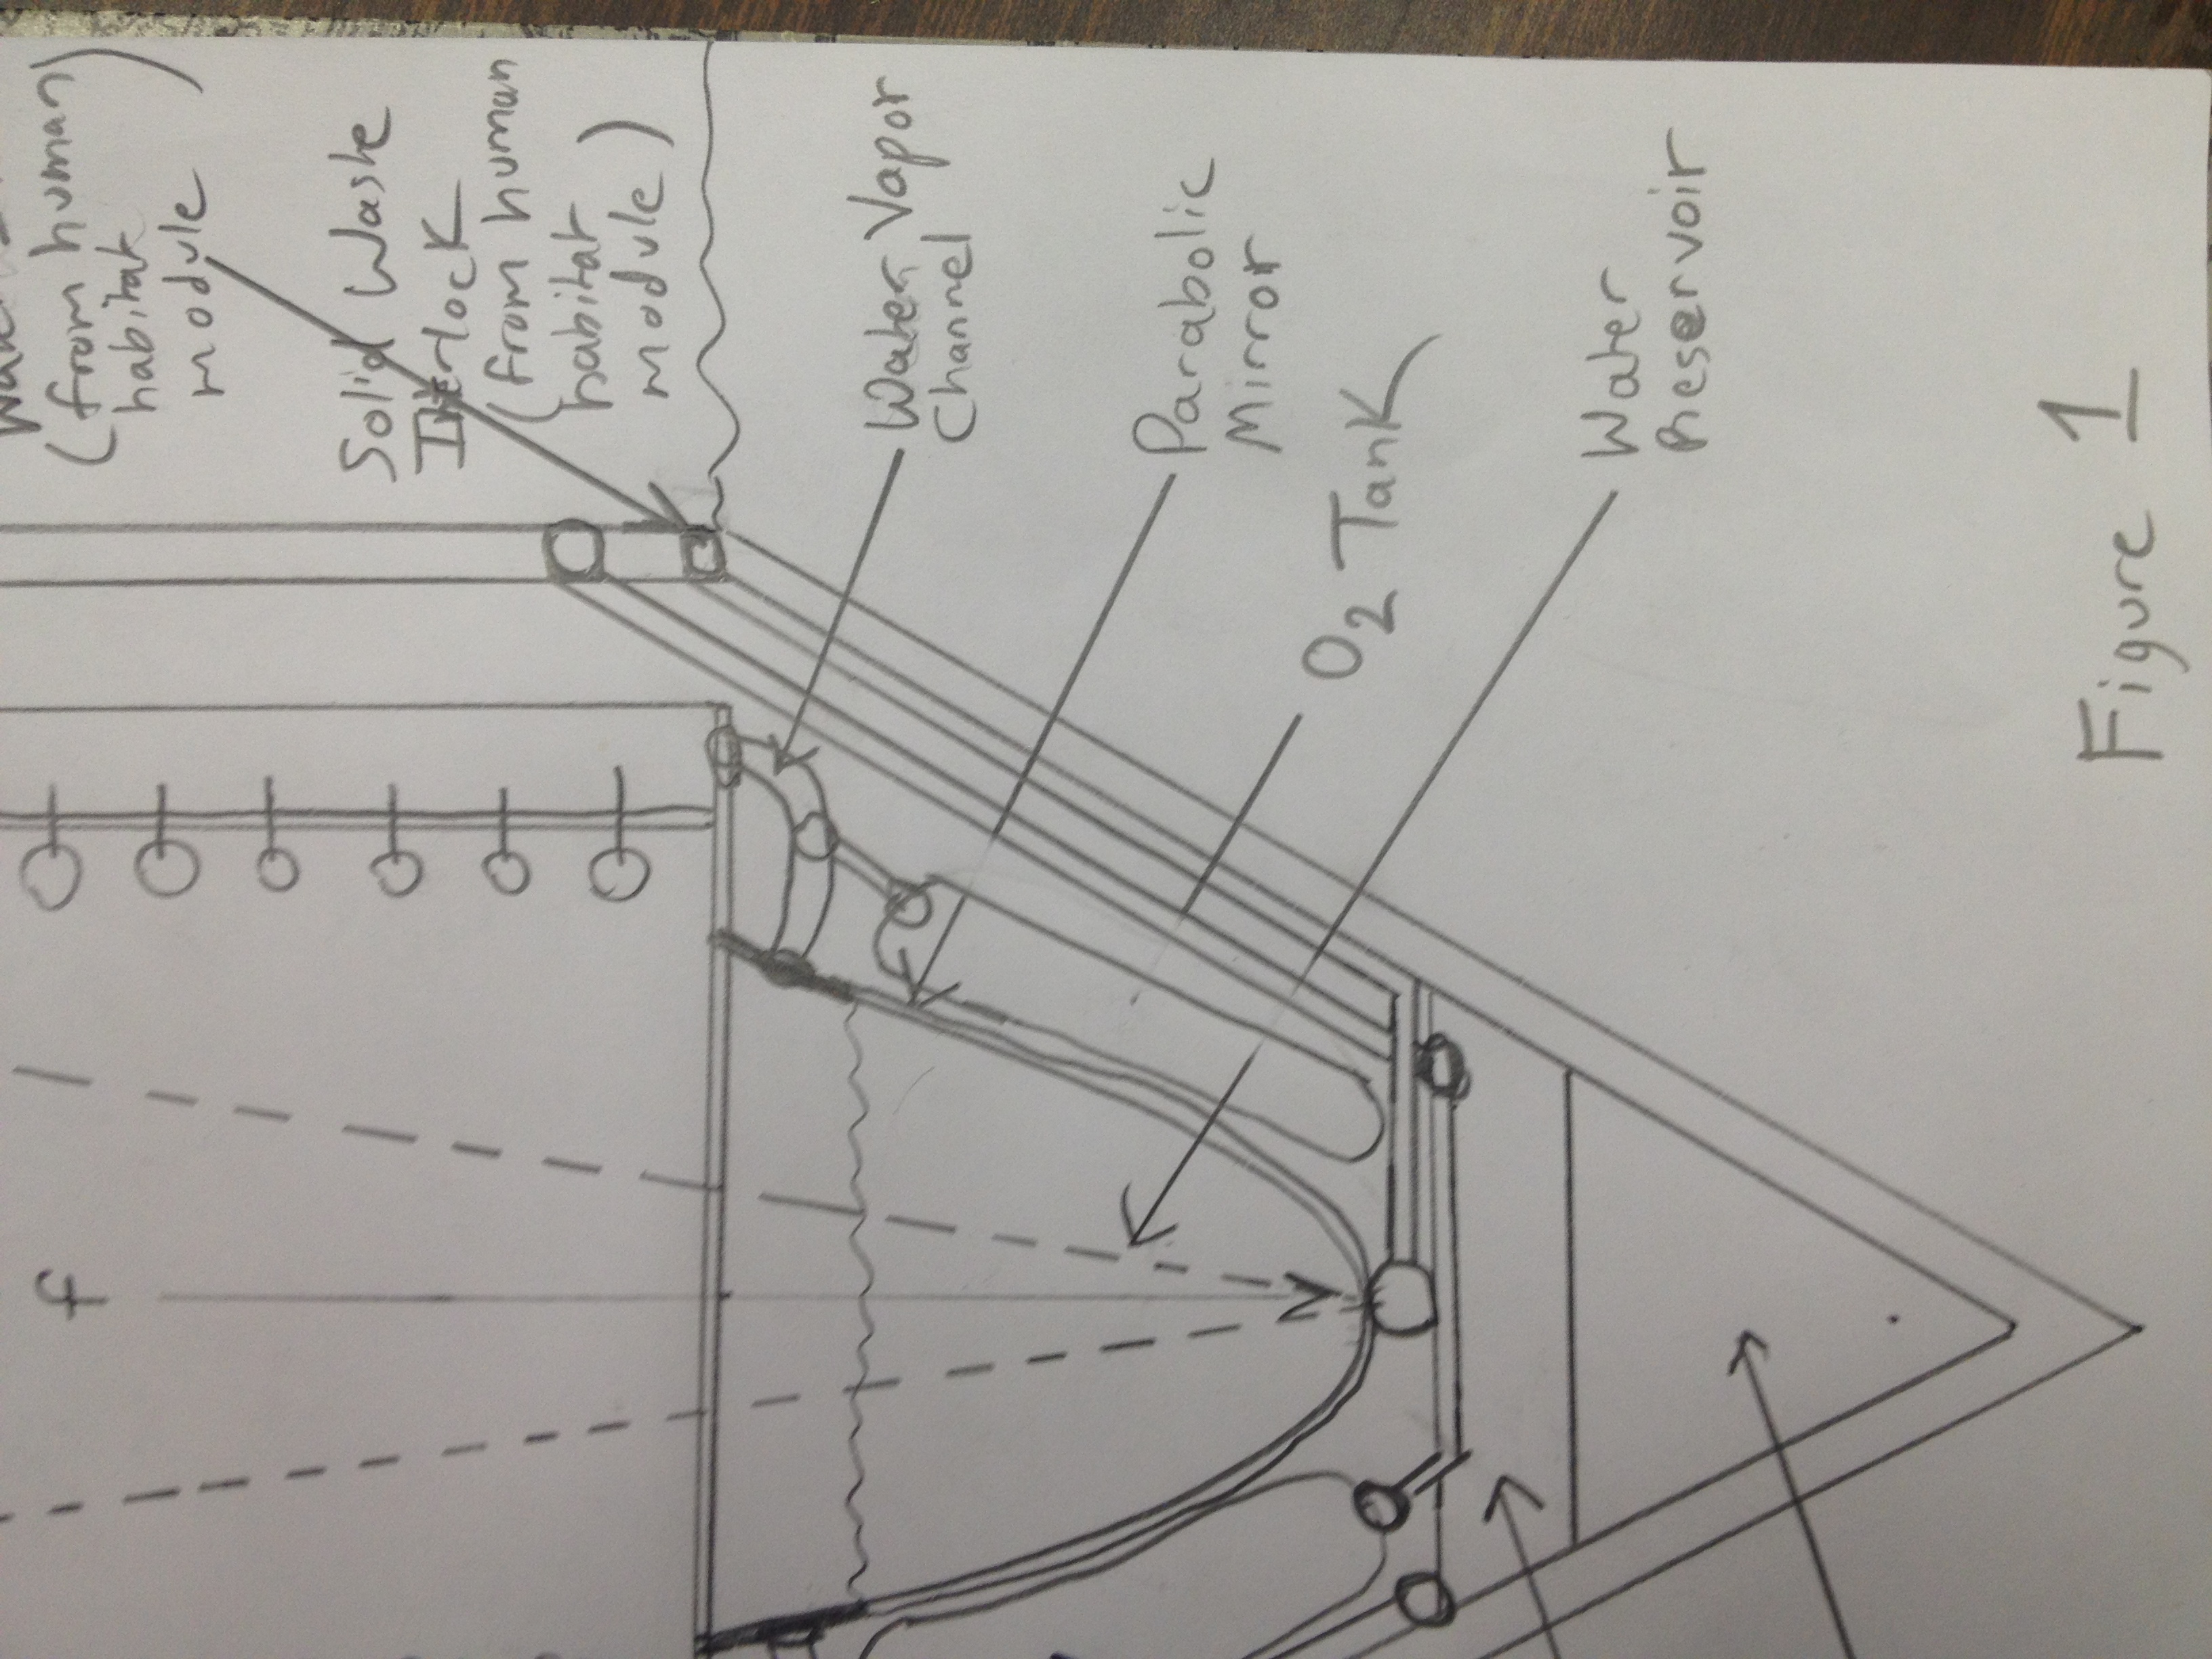 f
(from human
habitat
module)
Solid Waste
Interlock
(from human
habitat
module)
Water Vapor
Channel
Parabolic
Mirror
O₂ Tank
Water
Reservoir
Figure 1